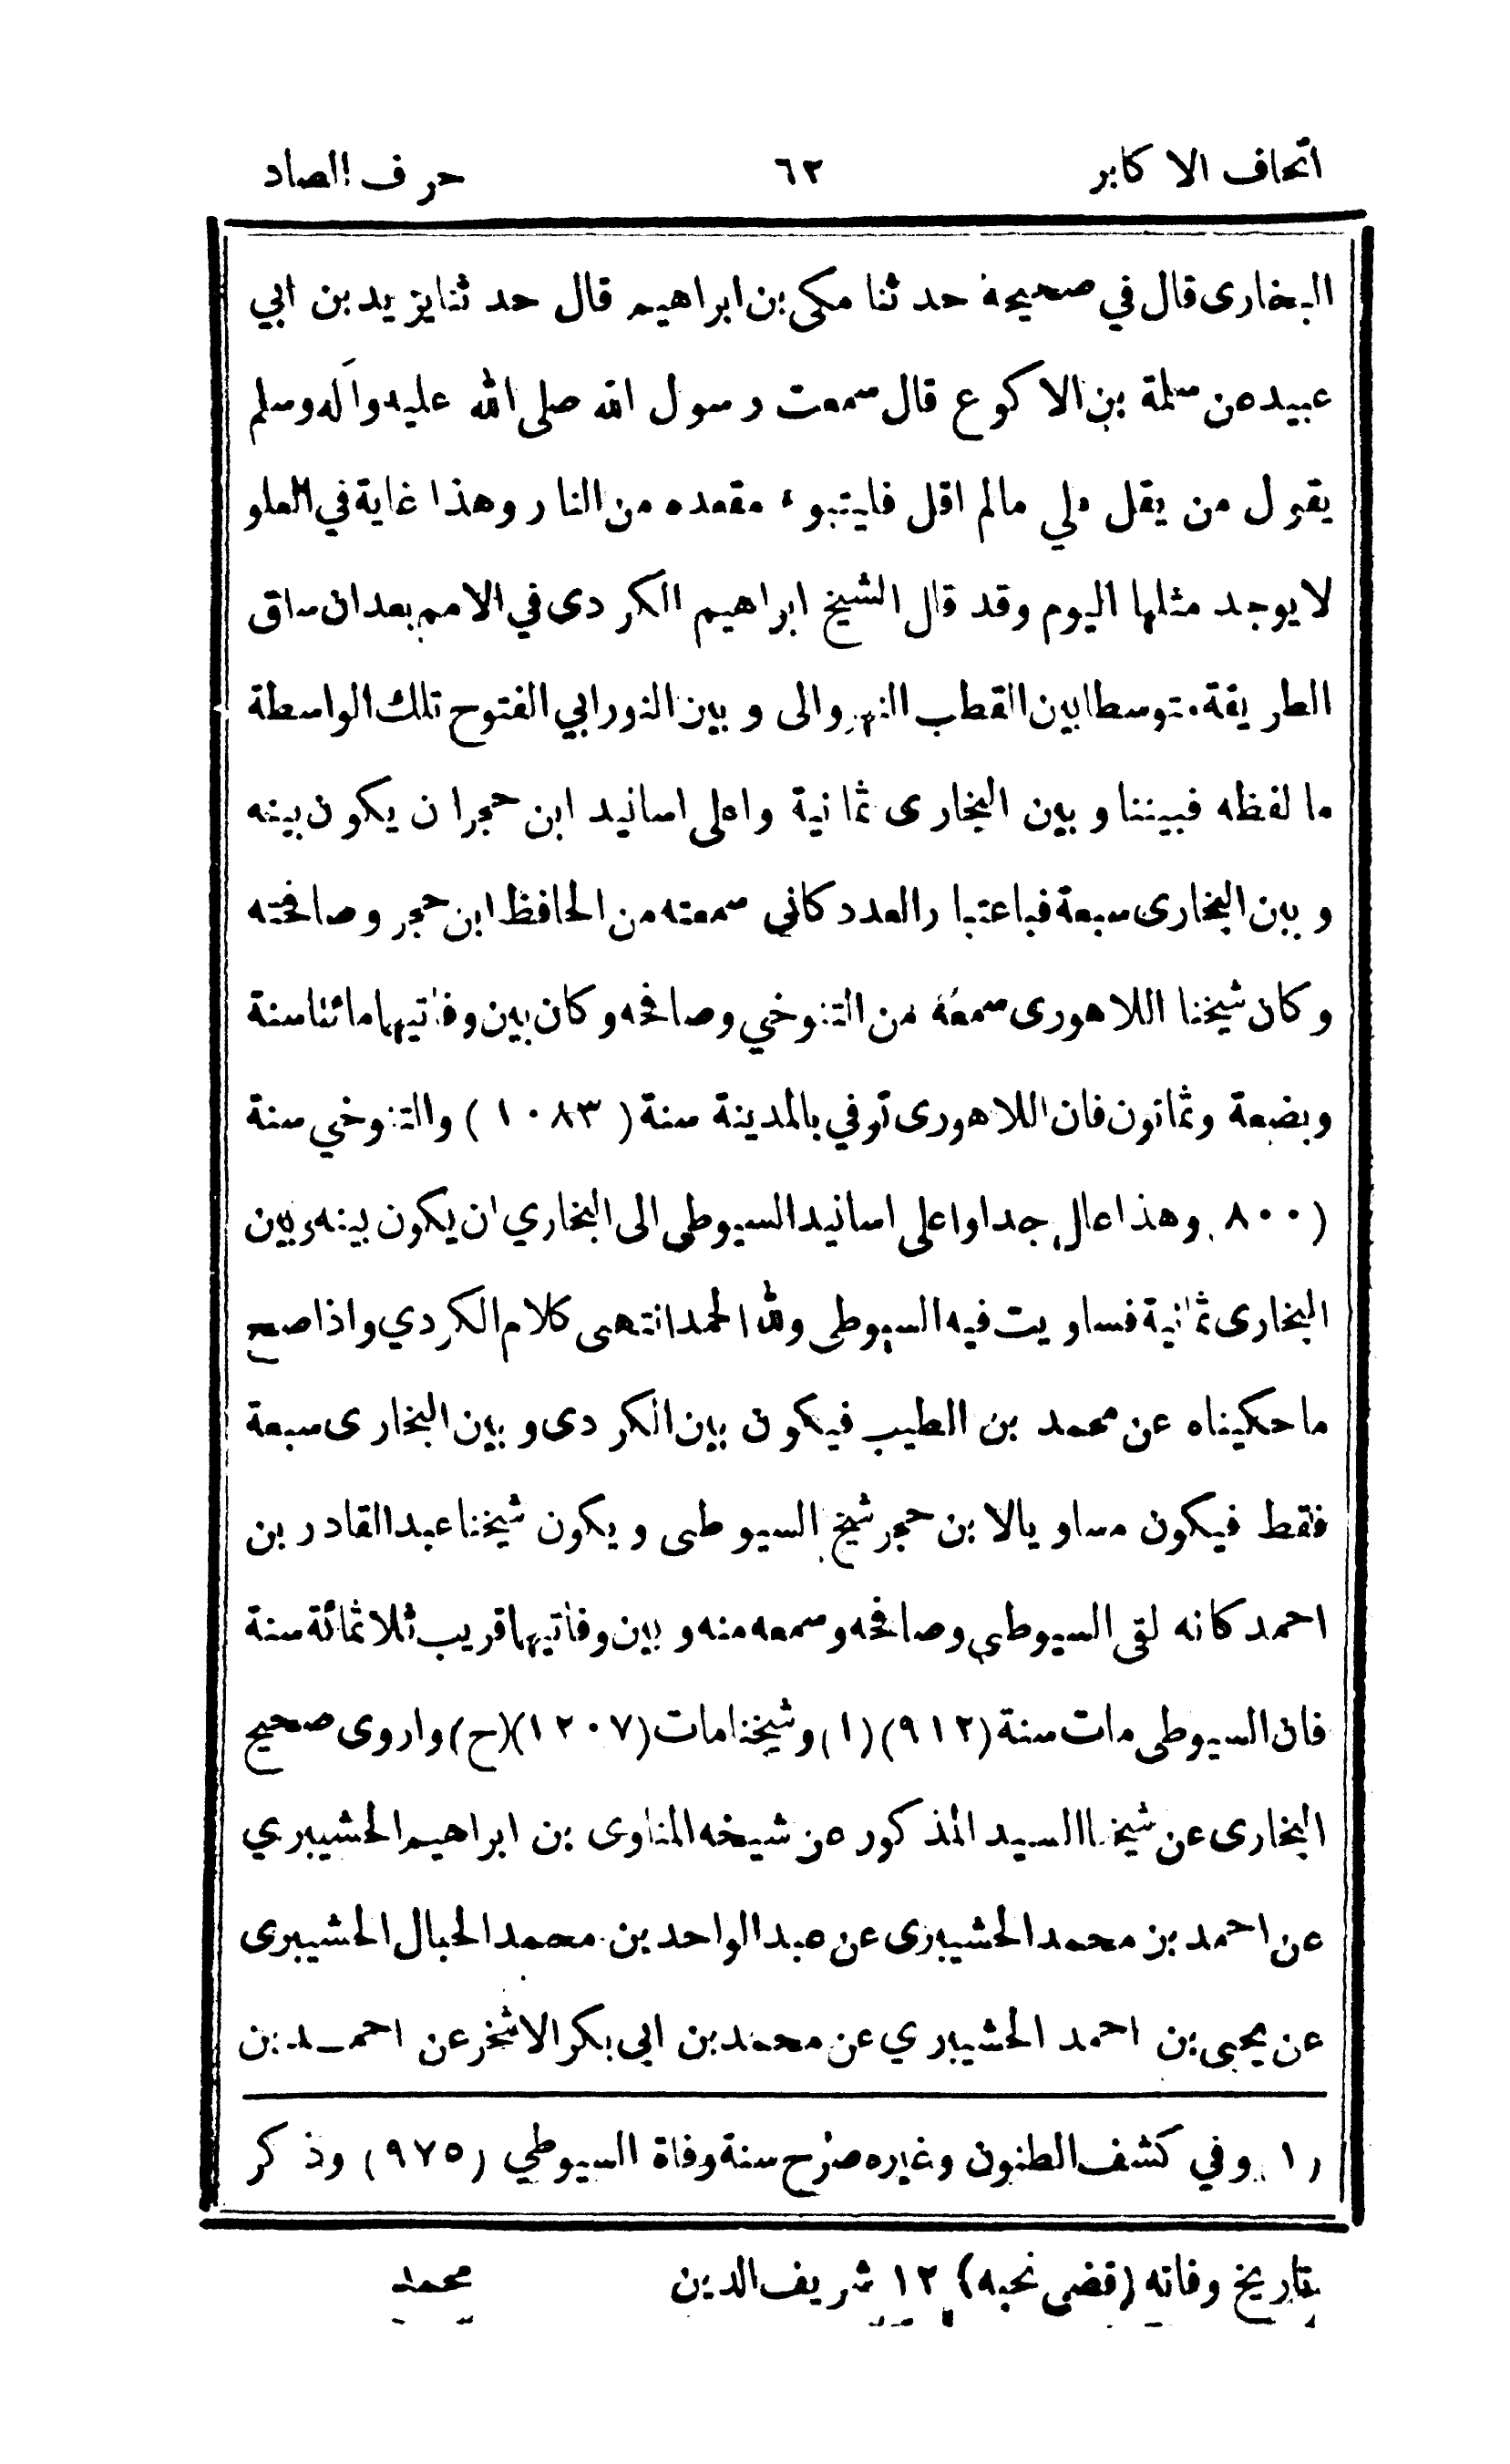 اتحاف الاكابر ٦٢ حرف الصاد
البخارى قال في صحيحه حدثنا مكي بن ابراهيم قال حدثنا يزيد بن ابي
عبيد عن سلمة بن الاكوع قال سمعت رسول الله صلى الله عليه وآله وسلم
يقول من يقل علي مالم اقل فليتبوء مقعده من النار وهذا غاية في العلو
لا يوجد مثلها اليوم وقد قال الشيخ ابراهيم الكردى في الامم بعدان ساق
الطريقة متوسطا بين القطب النهروالى وبين النور ابي الفتوح تلك الواسطة
ما لفظه فبيننا وبين البخارى ثمانية واعلى اسانيد ابن حجر ان يكون بينه
وبين البخارى سبعة فباعتبار العدد كاني سمعته من الحافظ ابن حجر وصافحته
وكان شيخنا اللاهورى سمعه من التنوخي وصافحه وكان بين وفاتيهما مائتا سنة
وبضعة وثمانون فان اللاهورى توفي بالمدينة سنة ( ١٠٨٣ ) والتنوخي سنة
( ٨٠٠ ) وهذا عال جدا واعلى اسانيد السيوطى الى البخاري ان يكون بينه وبين
البخارى ثمانية فساويت فيه السيوطى ولله الحمد انتهى كلام الكردي واذا صح
ما حكيناه عن محمد بن الطيب فيكون بين الكردى وبين البخارى سبعة
فقط فيكون مساويا لابن حجر شيخ السيوطى ويكون شيخنا عبدالقادر بن
احمد كانه لقى السيوطى وصافحه وسمعه منه وبين وفاتيهما قريب ثلاثمائة سنة
فان السيوطى مات سنة (٩١٢) (١) وشيخنا مات (١٢٠٧)(ح) واروى صحيح
البخارى عن شيخنا السيد المذكور عن شيخه المناوى بن ابراهيم الحشيبري
عن احمد بن محمد الحشيبرى عن عبدالواحد بن محمد الحبال الحشيبرى
عن يحيى بن احمد الحشيبري عن محمد بن ابى بكر الاشخر عن احمد بن
(١) وفي كشف الظنون وغيره صرح سنة وفاة السيوطي (٩٧٥) وذكر
بتاريخ وفاته (قضى نحبه) ١٢ شريف الدين محمد